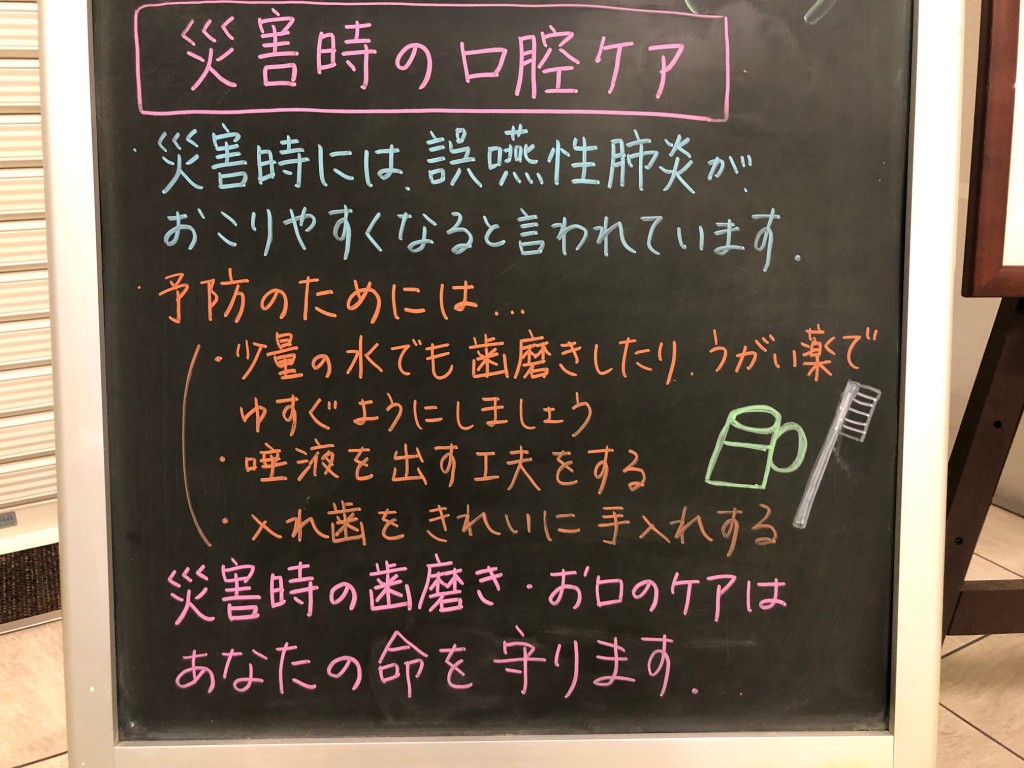 災害時の口腔ケア
・災害時には、誤嚥性肺炎が
おこりやすくなると言われています.
・予防のためには…
・少量の水でも歯磨きしたり、うがい薬で
ゆすぐようにしましょう
・唾液を出す工夫をする
・入れ歯をきれいに手入れする
災害時の歯磨き・お口のケアは
あなたの命を守ります.